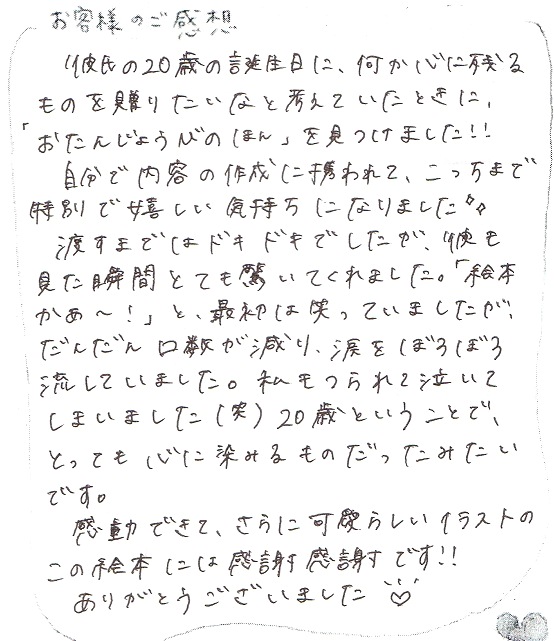 お客様のご感想
彼氏の20歳の誕生日に、何か心に残る
ものを贈りたいなと考えていたときに、
「おたんじょうびのほん」を見つけました!!
自分で内容の作成に携われて、こっちまで
特別で嬉しい気持ちになりました
渡すまではドキドキでしたが、彼も
見た瞬間とても驚いてくれました。「絵本
かぁ〜!」と、最初は笑っていましたが、
だんだん口数が減り、涙をぼろぼろ
流していました。私もつられて泣いて
しまいました(笑)20歳ということで、
とっても心に染みるものだったみたい
です。
感動できて、さらに可愛らしいイラストの
この絵本には感謝感謝です!!
ありがとうございました♡